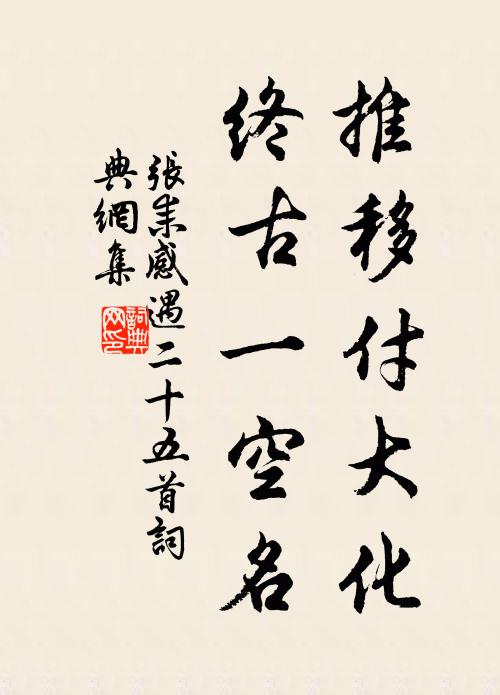 推移付大化
終古一空名
張耒感遇二十五首詞
典網集
詞典
网印